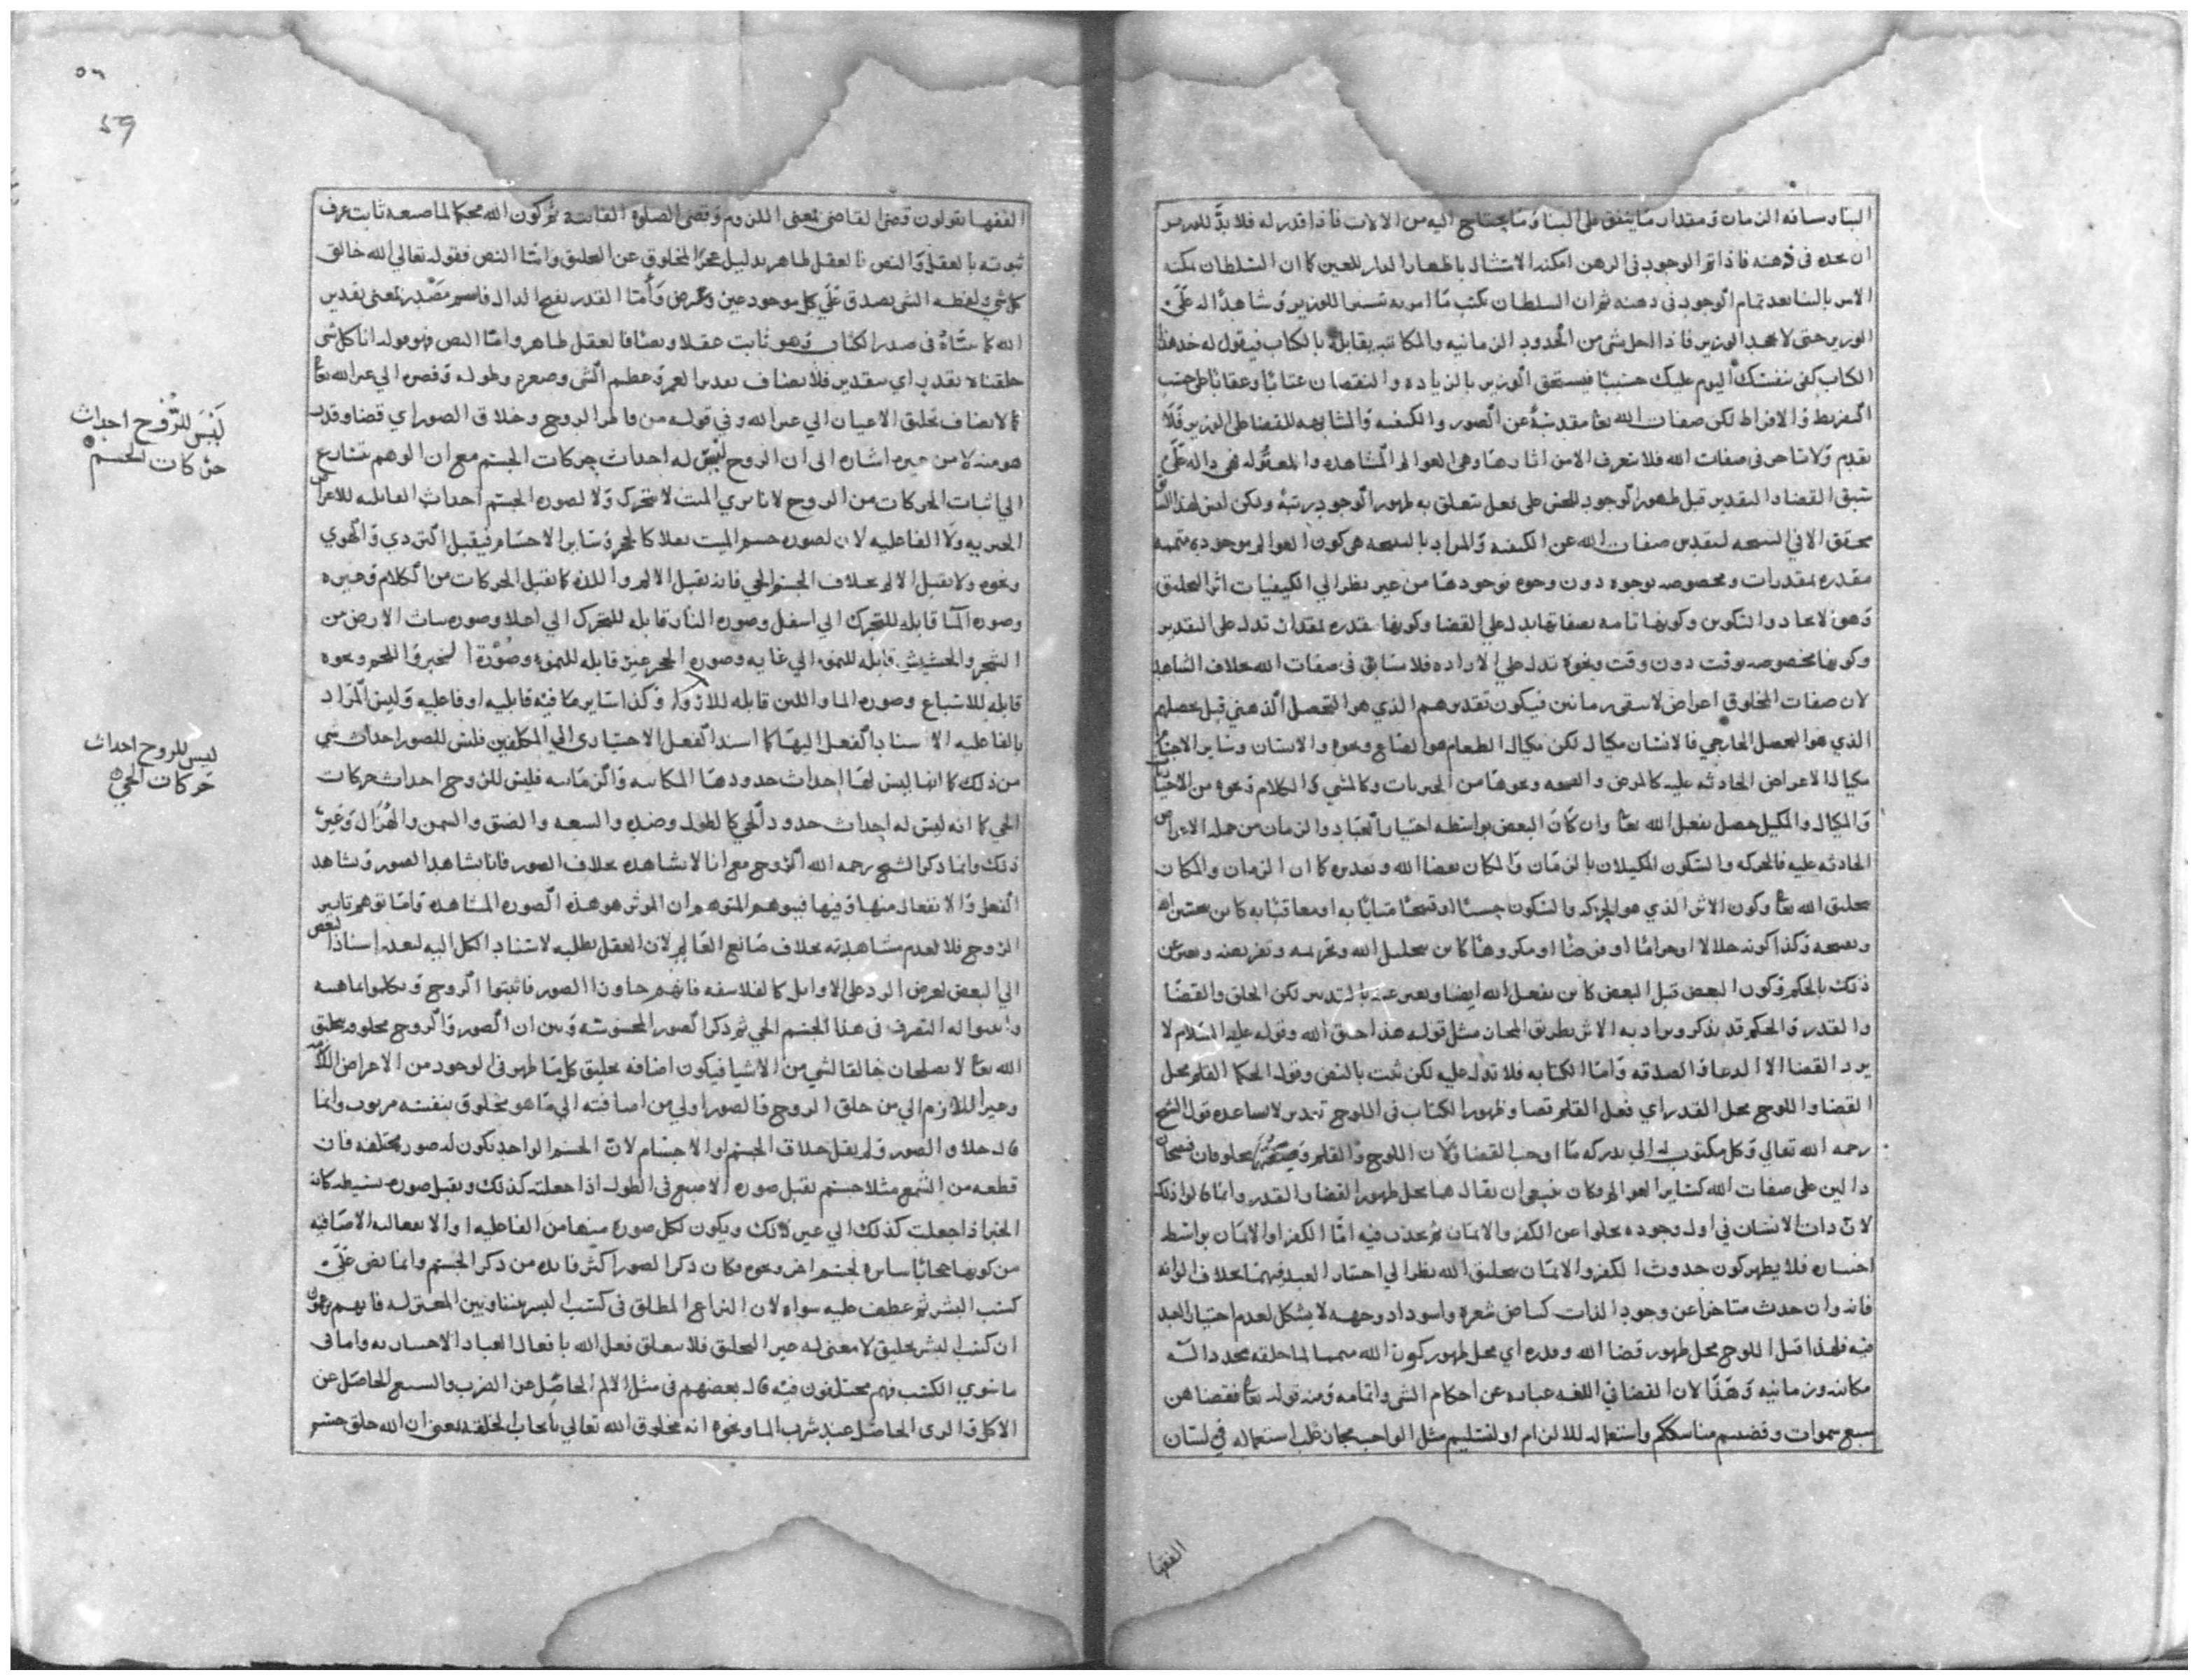 البنا وساىه الزمان ومقدار ما ينفق على البنا وما يحتاج اليه من الالات فاذا قدر له فلا بد للوزير
ان يجده فى ذهنه فاذا تم الوجود فى الذهن امكنه الامتثال باظهار الدار للعين كما ان السلطان يمكنه
الامر بالبنا بعد تمام الوجود فى ذهنه ثم ان السلطان يكتب ما امر به للوزير وشاهدا له على
الوزير حتى لا يجحد الوزير فاذا اخل بشى من الحدود الزمانيه والمكانيه يقابله بالكتاب فيقول له خذ هذا
الكتاب كفى بنفسك اليوم عليك حسيبا فيستحق الوزير بالزياده والنقصان عتابا وعقابا على حسب
التفريط والافراط لكن صفات الله تعا مقدسة عن الصور والكيفيه والمشابهه للقضا على الوزير فلا
تقدم ولا تاخر فى صفات الله فلا نعرف الا من اثارها وهى العوالم المشاهده والمعقوله فهى داله على
سبق القضا والتقدير قبل ظهور الوجود للحس على فعل يتعلق به ظهور الوجود رتبة ولكن ليس لهذا السبق
تحقق الا فى النسبه لتقديس صفات الله عن الكيفية والمراد بالنسبه هى كون العوالم موجوده متممه
مقدره بمقدرات ومخصوصه بوجوه دون وجوه فوجودها من غير نظر الى الكيفيات اثر التخليق
وهو الايجاد والتكوين وكونها تامه بصفاتها يدل على القضا وكونها مقدره بمقدار تدل على التقدير
وكونها مخصوصه بوقت دون وقت ونحوه تدل على الاراده فلا سابق فى صفات الله بخلاف الشاهد
لان صفات المخلوق اعراض لا تبقى زمانين فيكون تقديرهم الذي هو التحصل الذهني قبل تحصلهم
الذي هو التحصل الخارجي فالانسان مكيال لكن مكيال الطعام هو الصاع ونحوه والانسان وساير الاجسام
مكيال الاعراض الحادثه عليه كالمرض والصحه ونحوها من الجبريات وكالمشي والكلام ونحوه من الاختيار
والمكيال والمكيل حصل بفعل الله تعا وان كان البعض بواسطه اختيار العباد والزمان من جمله الاعراض
الحادثه عليه فالحركه والسكون المكيلان بالزمان والمكان بقضا الله وتقديره كما ان الزمان والمكان
بتخليق الله تعا وكون الاثر الذي هو الحركه والسكون حسنا او قبيحا مثابا به او معاقبا به كاين بتحسين الله
وتقبيحه وكذا كونه حلالا او حراما او فرضا او مكروها كاين بتحليل الله وتحريمه وتفريضه ويعبر عن
ذلك بالحكم وكون البعض قبل البعض كاين بفعل الله ايضا ويعبر عنه بالتدبير لكن الخلق والقضا
والقدر والحكم قد يذكر ويراد به الاثر بطريق المجاز مثل قوله هذا خلق الله وقوله عليه السلام لا
يرد القضا الا الدعا والصدقه واما الكتابه فلا تدل عليه لكن ثبت بالنص وقول الحكما القلم محل
القضا واللوح محل القدر اي فعل القلم قضا وظهور الكتاب فى اللوح تقدير لا يساعده قول الشيخ
رحمه الله تعالى وكل مكتوب له الى يدركه ما اوجب القضا ولان اللوح والقلم مخلوقان فيصحان
دالين على صفات الله كساير العوالم وكان ينبغي ان يقال هما محل ظهور القضا والقدر وانما قالوا ذلك
لان ذات الانسان في اول وجوده يخلوا عن الكفر والايمان ثم يحدث فيه اما الكفر او الايمان بواسطه
اختياره فلا يظهر كون حدوث الكفر والايمان بتخليق الله نظرا الى اختيار العبد فيهما بخلاف الوانه
فانه وان حدث متاخرا عن وجود الذات كبياض شعره واسوداد وجهه لا يشكل لعدم اختيار العبد
فيه فلهذا قيل اللوح محل ظهور قضا الله وقدره اي محل ظهور كون الله متمما لما خلقه بحدداته
مكانيه وزمانيه وهذا لان القضا فى اللغه عباره عن احكام الشى واتمامه ومنه قوله تعا فقضاهن
سبع سموات وقضيتم مناسككم واستعماله للالزام او لتسليم مثل الواجب مجاز غلب استعماله في لسان
الفقها
الفقها يقولون قضى القاضي بمعنى اللزوم وقضى الصلوة الفايتة ثم كون الله محكما لما صنعه ثابت عرف
ثبوته بالعقل والنص فالعقل ظاهر بدليل عجز المخلوق عن التخليق واما النص فقوله تعالى الله خالق
كل شي ولفظه الشى يصدق على كل موجود عين وعرض واما القدر بفتح الدال فاسم مصدر بمعنى تقدير
الله كما بيناه فى صدر الكتاب وهو ثابت عقلا ونصا فالعقل ظاهر واما النص فهو قوله انا كل شى
خلقناه بقدر اي بتقدير فلا يضاف تقدير العمر وعظم الشى وصغره وطوله وقصره الى غير الله تعا
كما لا يضاف تخليق الاعيان الى غير الله وفي قوله من فاطر الروح وخلاق الصور اي قضا وقدر
هو منه لا من غيره اشاره الى ان الروح ليس له احداث حركات الجسم مع ان الوهم يتنازع
الى اثبات الحركات من الروح لانا نرى الميت لا يتحرك ولا لصوره الجسم احداث القابليه للاعراض
الجبريه ولا الفاعليه لان لصوره جسم الميت ثقلا كالحجر وساير الاجسام فيقبل التردي والهوي
ونحوه ولا يقبل الالم بخلاف الجسم الحي فانه يقبل الالم واللذه كما يقبل الحركات من الكلام وغيره
وصوره الما قابله للتحرك الى اسفل وصوره النار قابله للتحرك الى اعلا وصوره نبات الارض من
الشجر والحشيش قابله للنمو الى غايه وصوره الحجر غير قابله للنمو وصورة الخبز واللحم ونحوه
قابله للاشباع وصوره الما واللبن قابله للارواء وكذا ساير ما فيه قابليه او فاعليه وليس المراد
بالفاعليه الا اسناد الفعل اليها كما اسند الفعل الاختيارى الى المكلفين فليس للصور احداث شي
من ذلك كما انها ليس لها احداث حدودها المكانيه والزمانيه فليس للروح احداث حركات
الحي كما انه ليس له احداث حدود الحي كالطول وضده والسعه والضيق والسمن والهزال وغير
ذلك وانما ذكر الشيخ رحمه الله الروح مع انا لا نشاهده بخلاف الصور فانا نشاهد الصور ونشاهد
الفعل والانفعال منها وفيها فيتوهم المتوهم ان الموثر هو هذه الصوره المشاهده واما توهم تاثير
الروح فلا لعدم مشاهدته بخلاف صانع العالم لان العقل يطلبه لاستناد الكل اليه لبعد اسناد البعض
الى البعض لغرض الرد على الاوايل كالفلاسفه فانهم جاوزا الصور فاثبتوا الروح وتكلموا بماهيته
واثبتوا له التصرف فى هذا الجسم الحي ثم ذكر الصور المحسوسه وبين ان الصور والروح مخلوق بتخليق
الله تعا لا يصلحان خالقا لشي من الاشيا فيكون اضافه تخليق كل ما ظهر فى الوجود من الاعراض اللازمه
وغير اللازم الى من خلق الروح والصور اولى من اضافته الى ما هو مخلوق بنفسه مربوب وانما
قال خلاق الصور ولم يقل خلاق الجسم او الاجسام لان الجسم الواحد تكون له صور مختلفه فان
قطعه من الشمع مثلا جسم يقبل صوره الاصبع فى الطول اذا جعلته كذلك ويقبل صوره بسيطه كانه
الخبز اذا جعلت كذلك الى غير ذلك ويكون لكل صورة منها من الفاعليه او الانفعاليه الاضافيه
من كونها حجابا ساترة لجسم اخر ونحوه فكان ذكر الصور اكثر فايده من ذكر الجسم وانما نص على
كسب البشر ثم عطف عليه سواه لان النزاع المطلق فى كسب البشر بيننا وبين المعتزله فانهم يقولون
ان كسب البشر تخليق لا معنى له غير التخليق فلا يتعلق فعل الله بافعال العباد الاختياريه واما فى
ما سوي الكسب فهم مختلفون فيه قال بعضهم فى مثل الالم الحاصل عن الضرب والشبع الحاصل عن
الاكل والروى الحاصل عند شرب الما ونحوه انه مخلوق الله تعالى بايجاب الخلقه بمعنى ان الله خلق جسم
ليس للروح احداث
حركات الجسم
ليس للروح احداث
حركات الحي
59